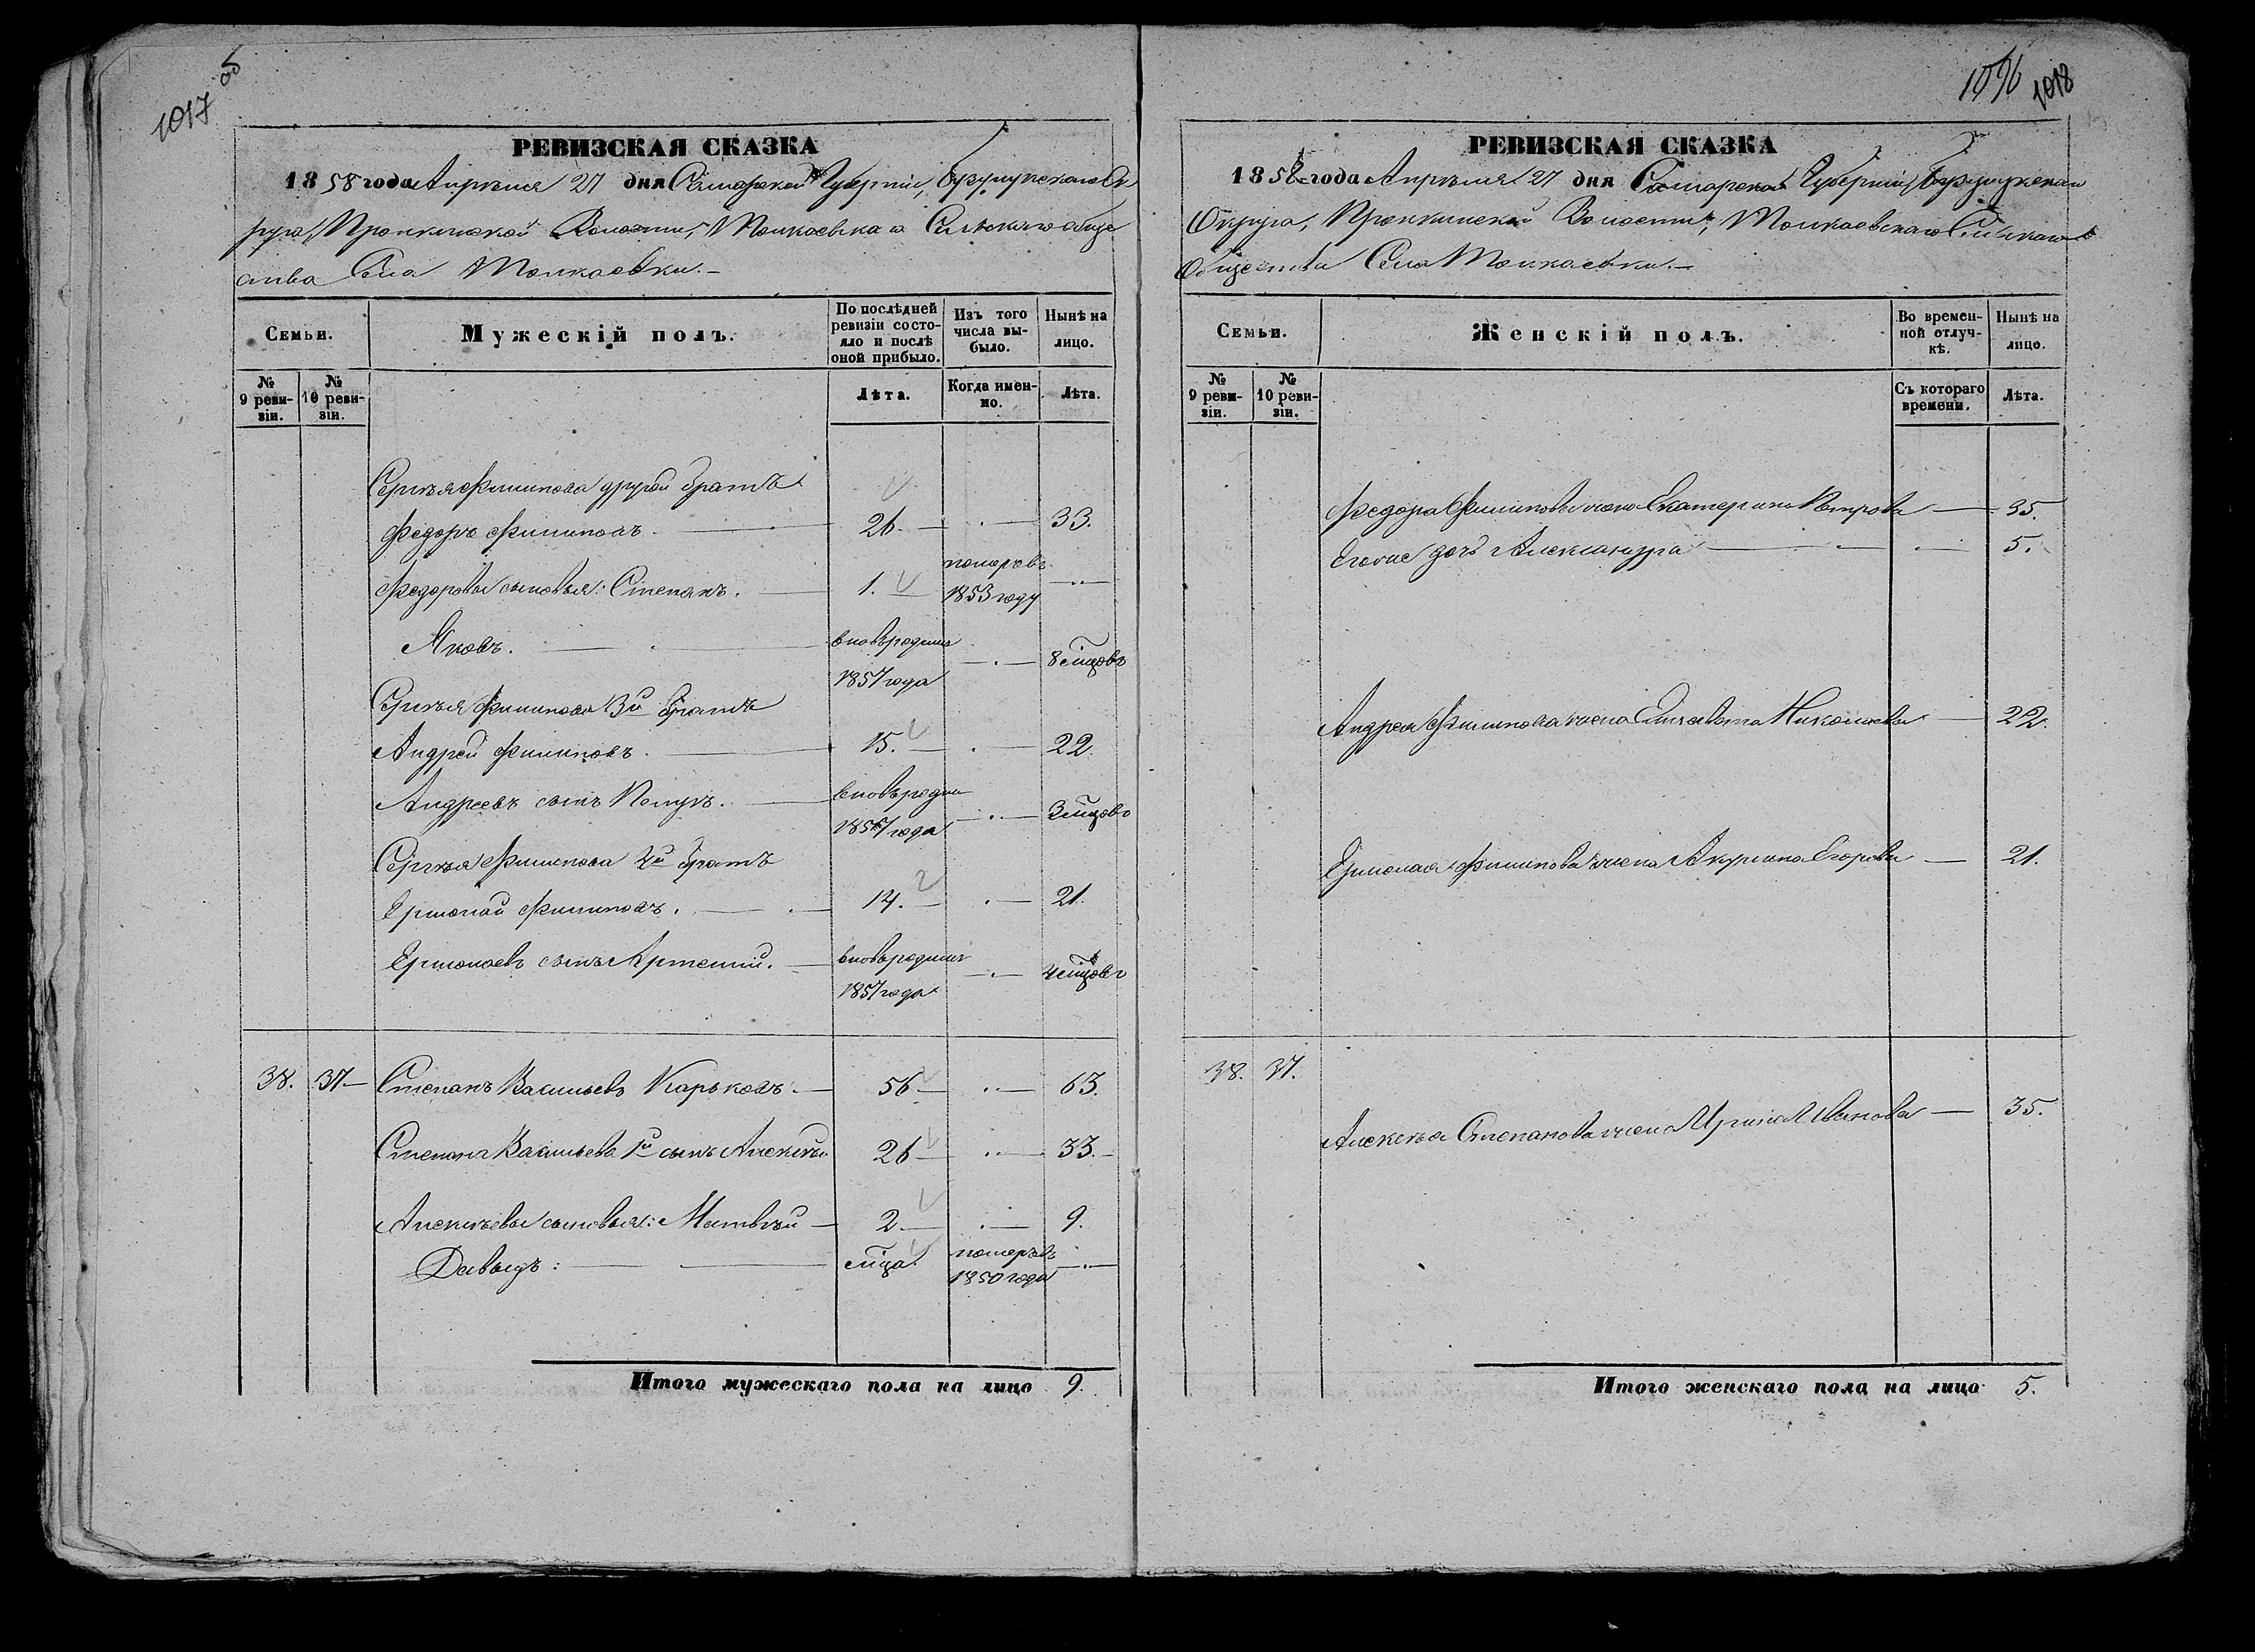 1017 об
РЕВИЗСКАЯ СКАЗКА
1858 года Апрѣля 27 дня Самарской Губерніи, Бузулукскаго Ок
руга, Пронкинской Волости, Толкаевскаго Сельскаго обще
ства Села Толкаевки.—
Семьи.
Мужескій полъ.
По послѣдней ревизіи состояло и послѣ оной прибыло.
Изъ того числа выбыло.
Нынѣ на лицо.
№ 9 ревизіи.
№ 10 ревизіи.
Лѣта.
Когда именно.
Лѣта.
Сергѣя Филипова другой братъ
Федоръ Филиповъ. 26. 33.
Федоровы сыновья: Степанъ. 1. померъ въ 1853 году
Яковъ. вновьрожден 1857 года 8 мѣцовъ
Сергѣя Филипова 3й братъ
Андрей Филиповъ. 15. 22.
Андреевъ сынъ вновьрожден 1857 года 3 мѣцовъ
Сергѣя Филипова 4й братъ
Ермолай Филиповъ. 14. 21.
Ермолаевъ сынъ Артемій. вновьрожден 1857 года 4 мѣцовъ
38. 37. Степанъ Васильевъ Карьковъ. 56 63.
Степана Васильева 1й сынъ Алексѣй 26 33.
Алексѣевы сыновья: Матвѣй 2 9.
Давыдъ: мѣца. померъ въ 1850 года
Итого мужескаго пола на лицо 9.
1096 1018
РЕВИЗСКАЯ СКАЗКА
1858 года Апрѣля 27 дня Самарской Губерніи, Бузулукскаго
Округа, Пронкинской Волости, Толкаевскаго Сельскаго
Общества Села Толкаевки.—
Семьи.
Женскій полъ.
Во временной отлучкѣ.
Нынѣ на лицо.
№ 9 ревизіи.
№ 10 ревизіи.
Съ котораго времени.
Лѣта.
Федора Филипова жена Екатерина Петрова 35.
Егоже дочь Александра 5.
Андрея Филипова жена Елизавета Николаева 22.
Ермолая Филипова жена Акулина Егорова 21.
38. 37.
Алексѣя Степанова жена Ирина Иванова 35.
Итого женскаго пола на лицо 5.